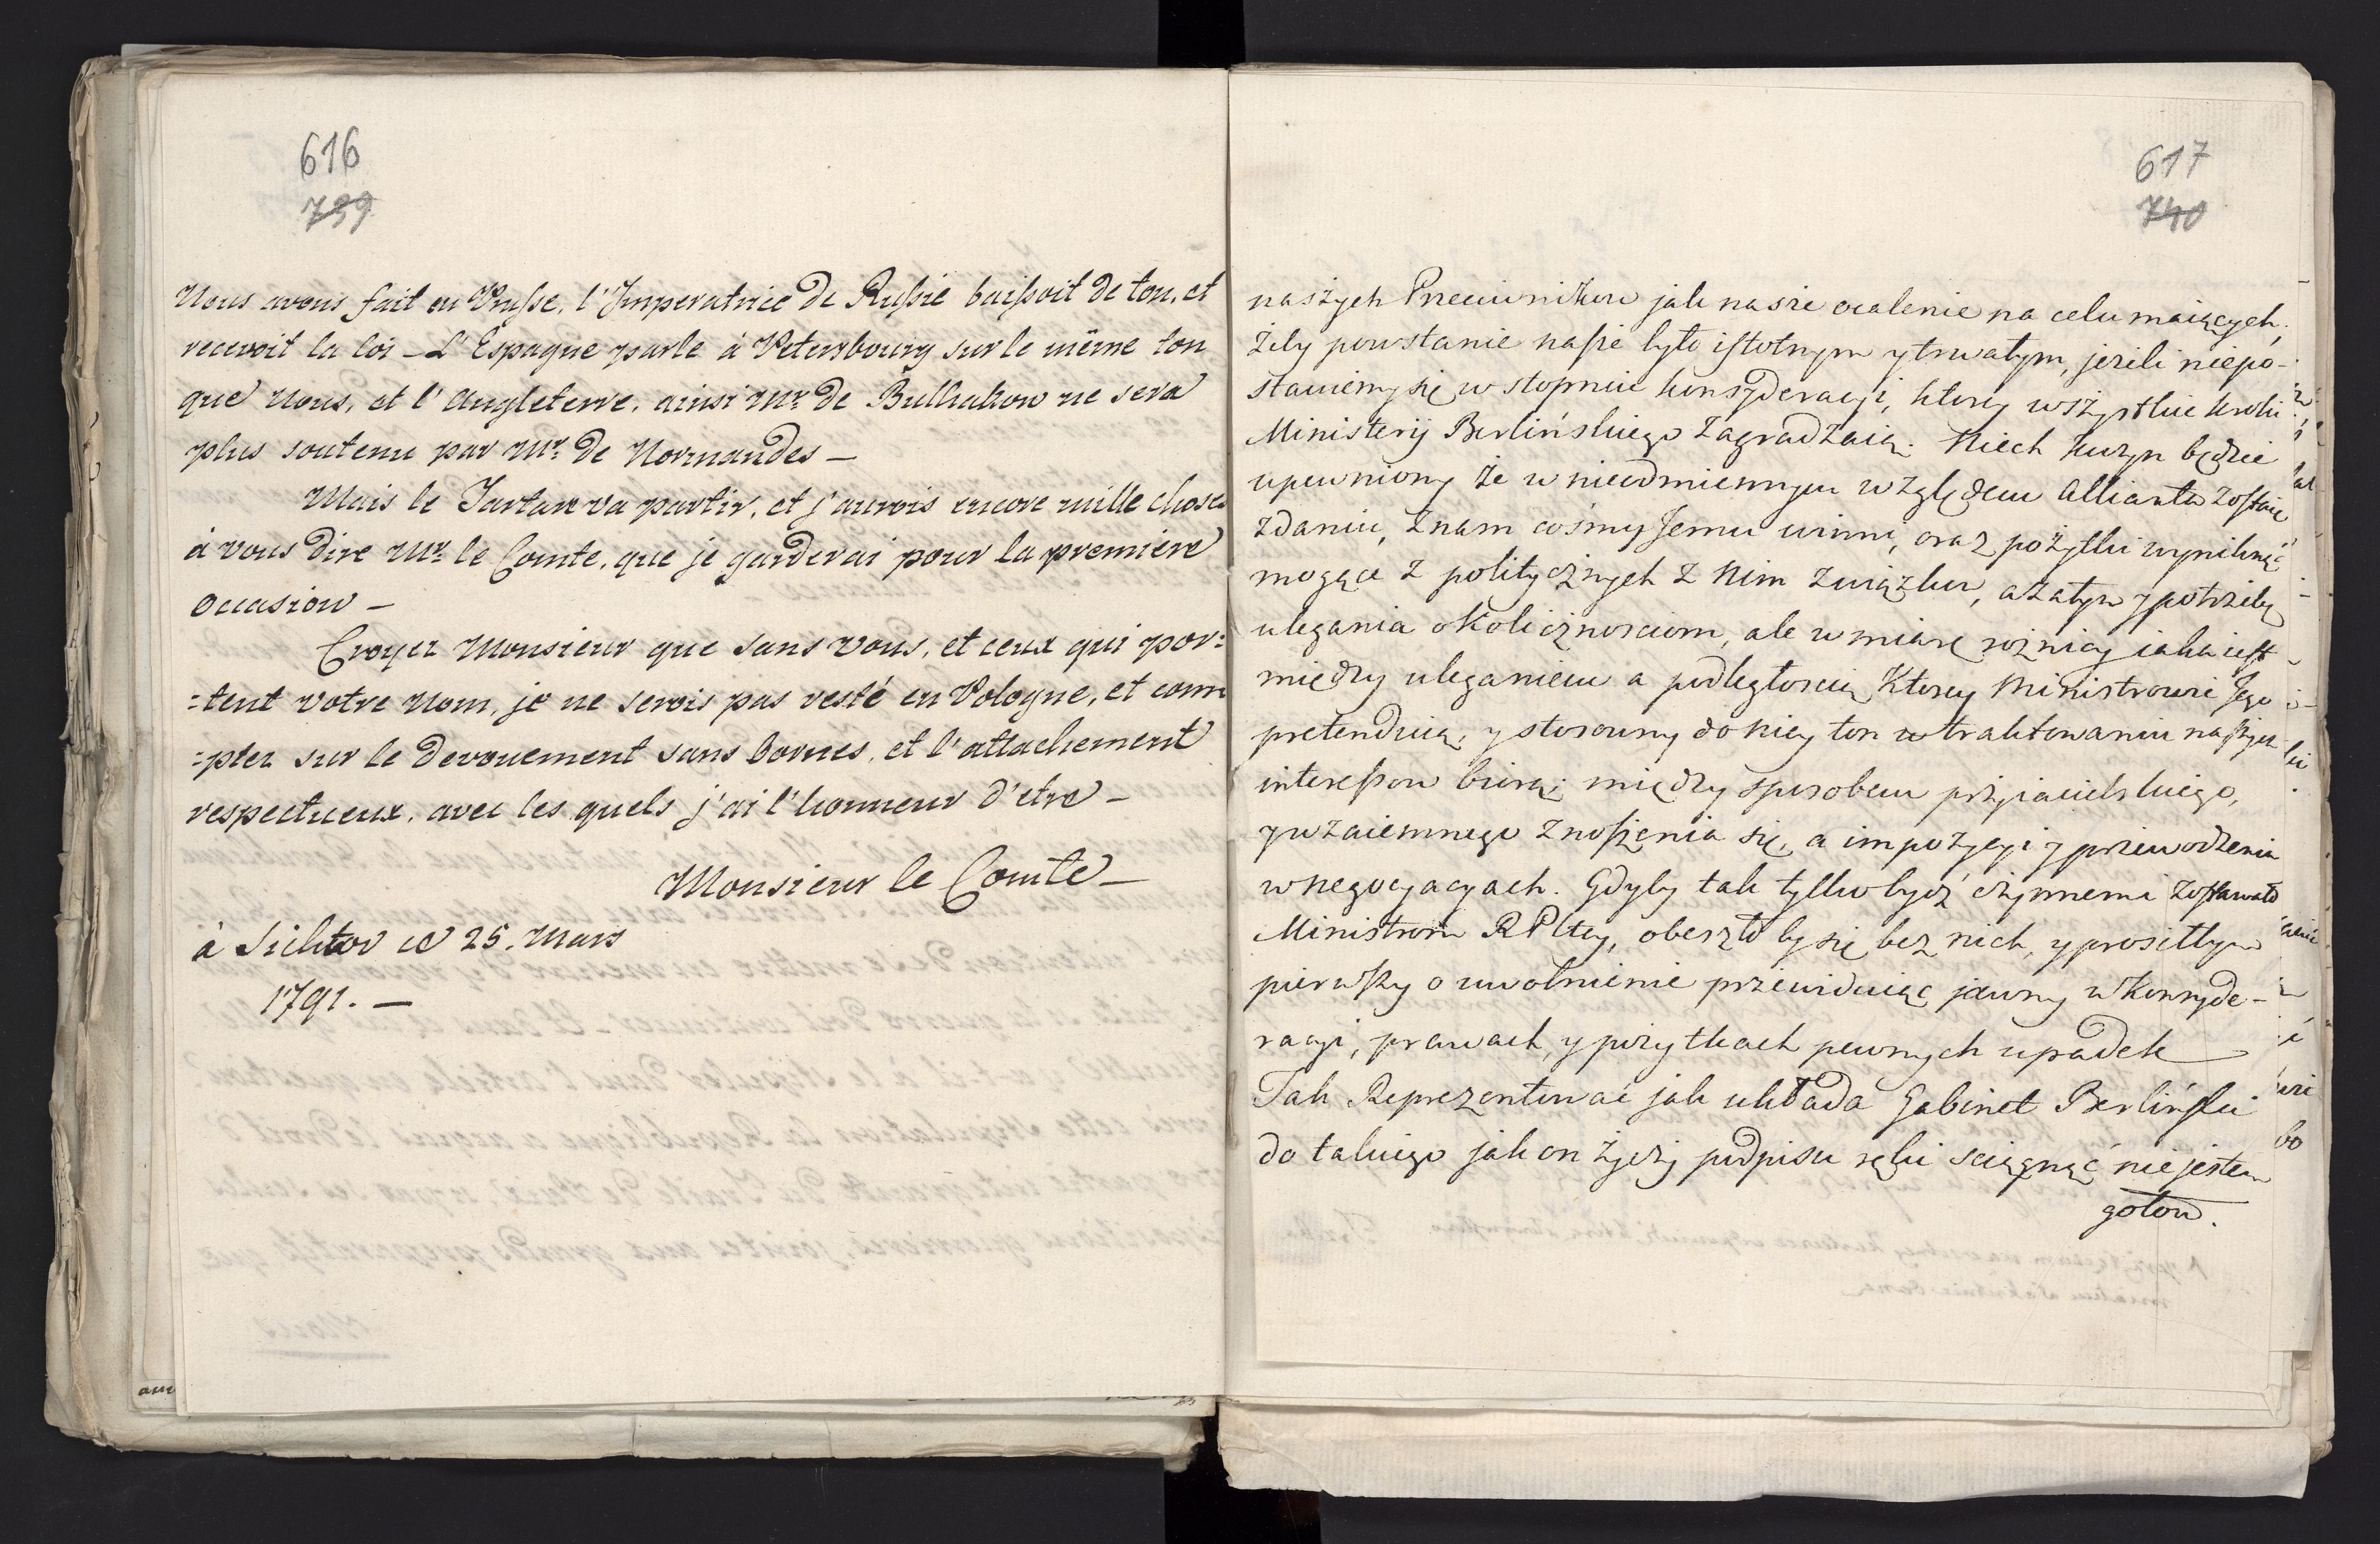 616
739
Nous avons fait en Prusse, l'Imperatrice de Russie baissoit de ton, et
recevoit la loi – L'Espagne parle à Petersbourg sur le même ton
que Nous, et l'Angleterre, ainsi Mr. de Bulhakow ne sera
plus soutenu par Mr. de Normandes –
Mais le Tartare va partir, et j'aurois encore mille choses
à vous dire Mr. le Comte, que je garderai pour la première
occasion –
Croyez Monsieur que sans vous, et ceux qui por:
:tent votre nom, je ne serois pas resté en Pologne, et com
:ptez sur le devouement sans bornes, et l'attachement
respectueux, avec les quels j'ai l'honneur d'etre –
Monsieur le Comte –
à Silistor ce 25. Mars
1791. –
617
740
naszych Przeciwnikow jak nasze ocalenie na celu maiących,
żeby powstanie nasze było istotnym y trwałym, jezeli niepo-
stawiemy się w stopniu konsyderacyi, ktorey wszystkie kroki
Ministeryi Berlińskiego zagradzaią. Niech Kuzyn będzie
upewniony że w nieodmiennym względem Allianta zostaię
zdaniu, znam cośmy Jemu winni, oraz pożytki wyniknąć
mogące z politycznych z Nim związkow, a zatym y potrzebę
ulegania okolicznosciom, ale w miarę roznicy iaka iest
między uleganiem a podległoscią ktorey Ministrowie Jego
pretenduią, y stosowny do niey ton w traktowaniu naszych
interessow biorą; między sposobem przyiacielskiego,
y wzaiemnego znoszenia się, a impozycyi y przewodzenia
w negocyacyach. Gdyby tak tylko bydź czynnemi zostawało
Ministrom RPltey, obeszło by się bez nich, y prosiłbym
pierwszy o uwolnienie przewiduiąc jawny w konsyde-
racyi, prawach, y pożytkach pewnych upadek
Tak Reprezentować jak układa Gabinet Berliński
do takiego jak on życzy podpisu ręki sciągnąć nie jestem
gotow.